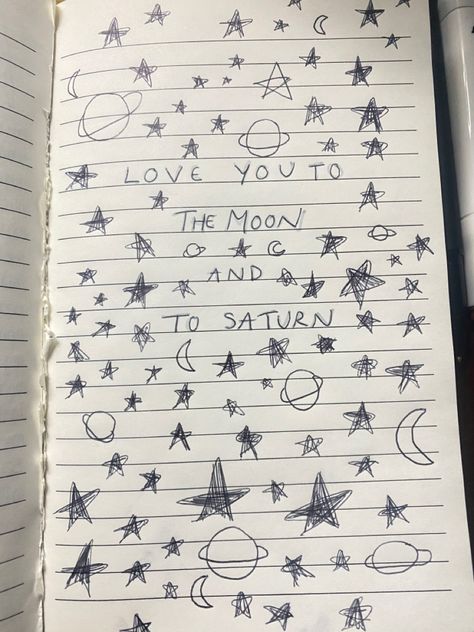 LOVE YOU TO
THE MOON
AND
TO SATURN